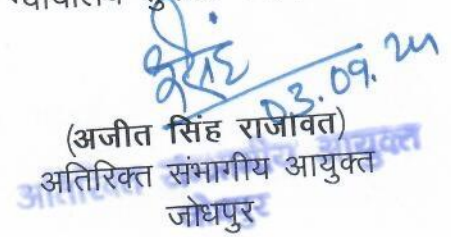 03.09.24
(अजीत सिंह राजावत)
अतिरिक्त संभागीय आयुक्त
जोधपुर